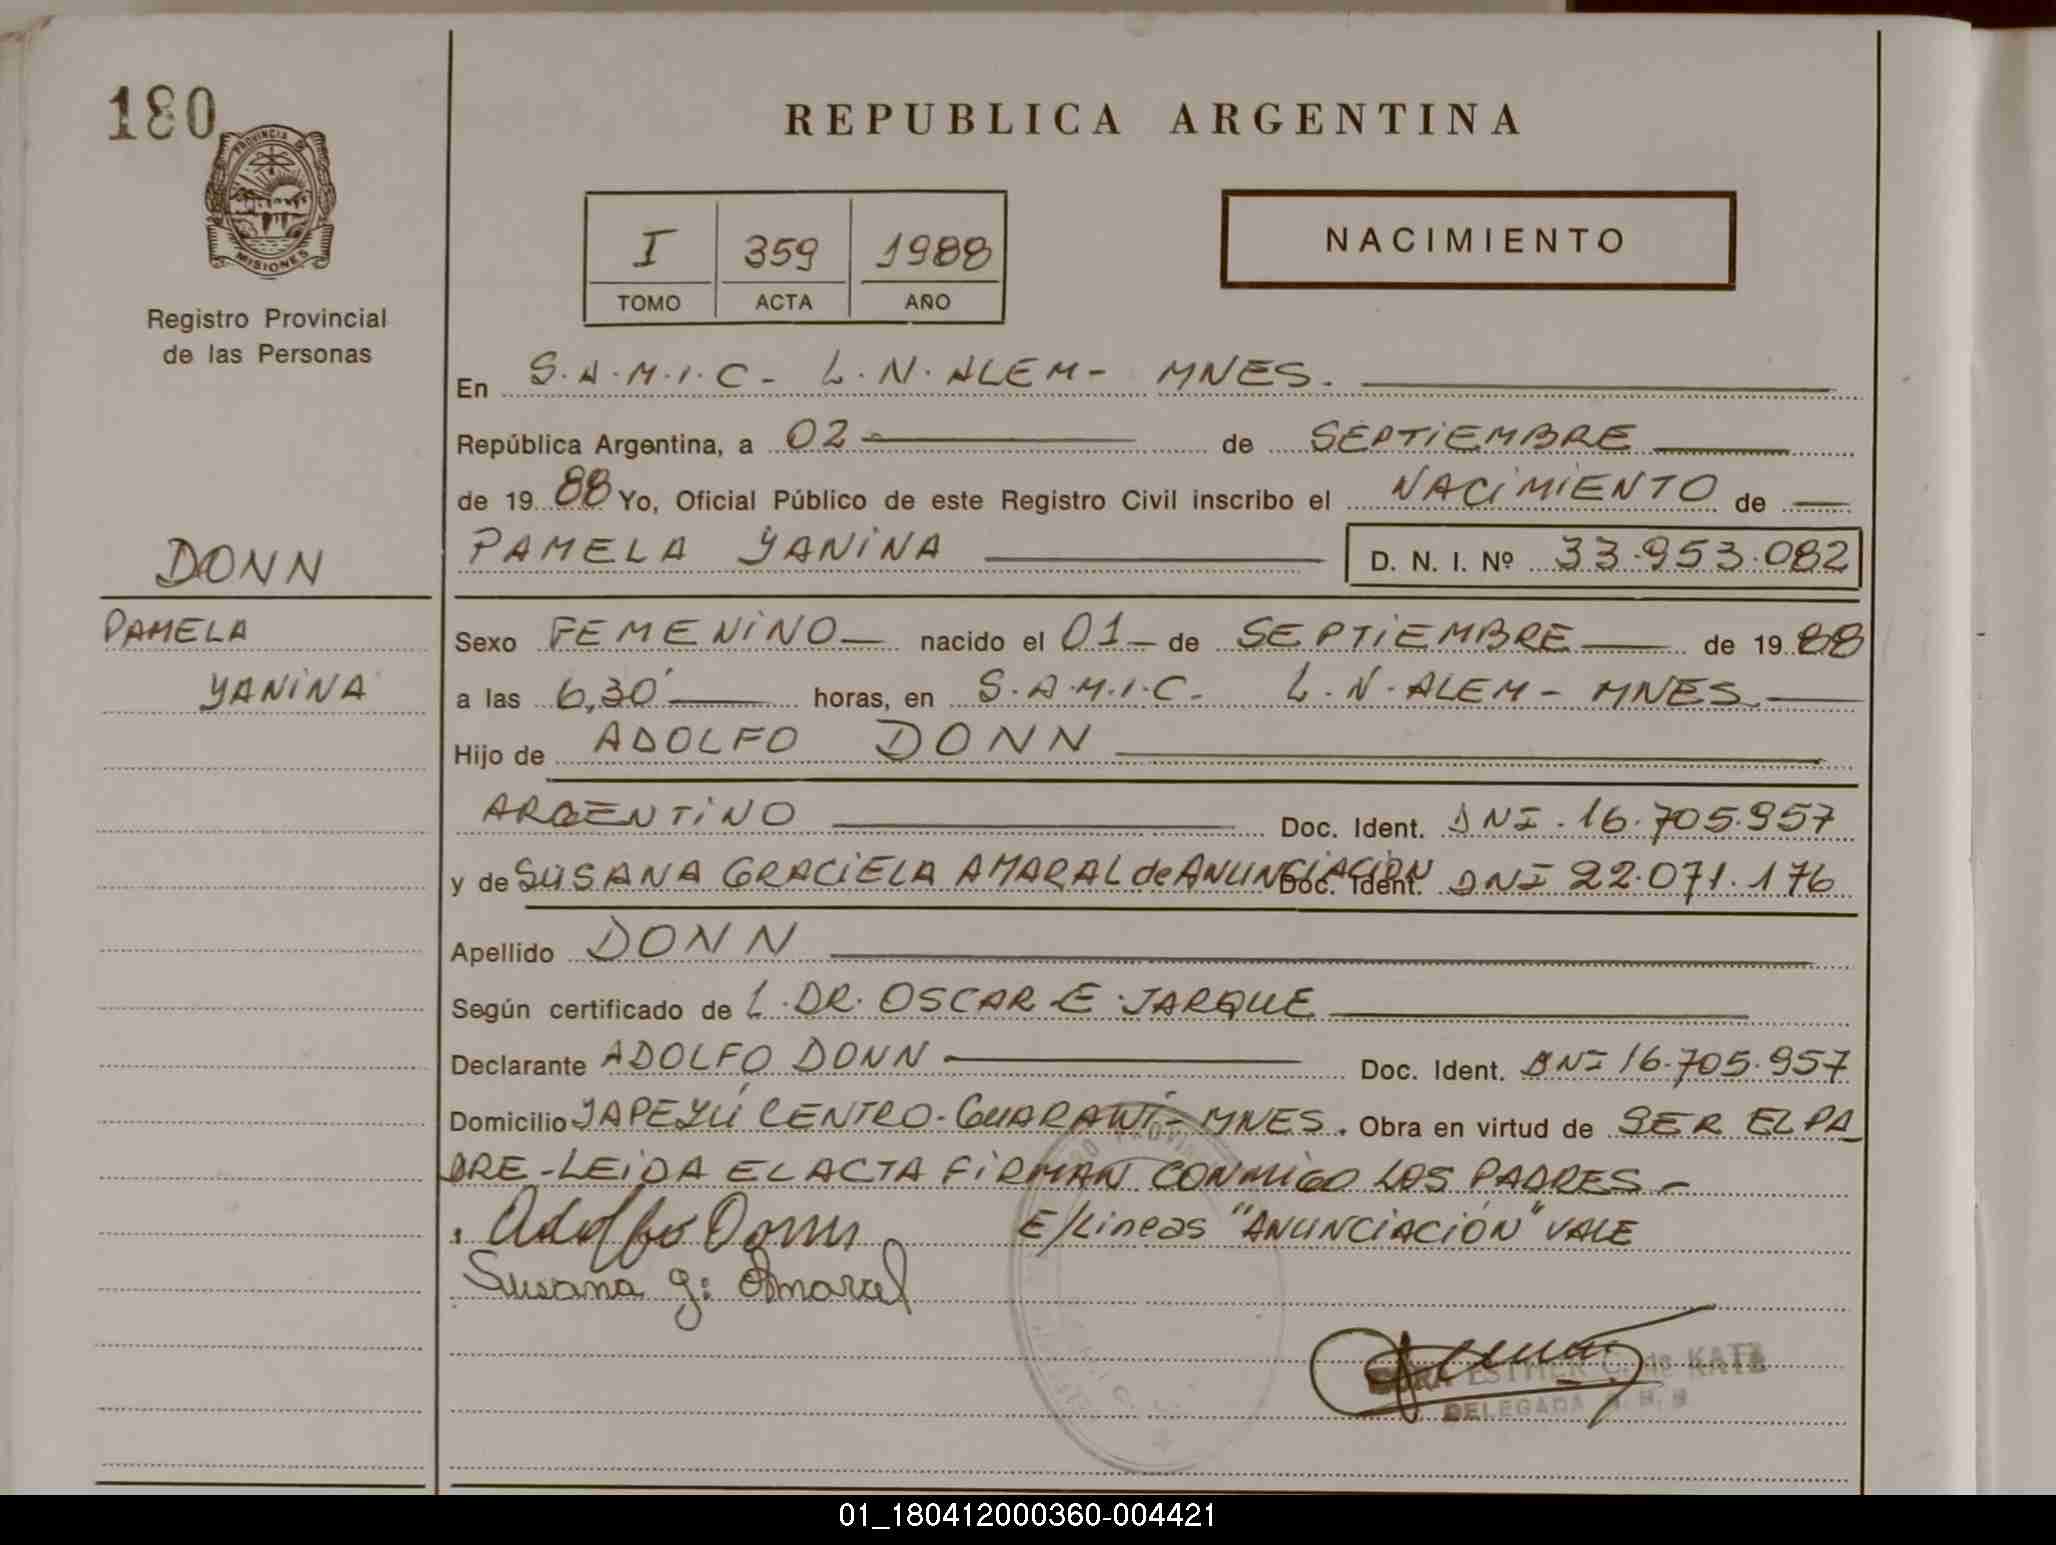 180
PROVINCIA DE
MISIONES
Registro Provincial
de las Personas
REPUBLICA ARGENTINA
I 359 1988
TOMO ACTA AÑO
NACIMIENTO
En S.A.M.I.C- L.N.ALEM- MNES.
República Argentina, a 02 de SEPTIEMBRE
de 19 88 Yo, Oficial Público de este Registro Civil inscribo el NACIMIENTO de
PAMELA YANINA D. N. I. Nº 33.953.082
DONN
PAMELA
YANINA
Sexo FEMENINO nacido el 01 de SEPTIEMBRE de 19 88
a las 6,30 horas, en S.A.M.I.C. L.N.ALEM- MNES
Hijo de ADOLFO DONN
ARGENTINO Doc. Ident. DNI.16.705.957
y de SUSANA GRACIELA AMARAL de ANUNCIACIÓN Doc. Ident. DNI 22.071.176
Apellido DONN
Según certificado de L.DR.OSCAR E.JARQUE
Declarante ADOLFO DONN Doc. Ident. DNI 16.705.957
Domicilio YAPEYÚ CENTRO-GUARANÍ-MNES. Obra en virtud de SER EL PA
DRE-LEIDA EL ACTA FIRMAN CONMIGO LOS PADRES-
Adolfo Donn E/Lineas "ANUNCIACIÓN" VALE
Susana G: Amaral
ESTHER C. de KATZ
DELEGADA
01_180412000360-004421